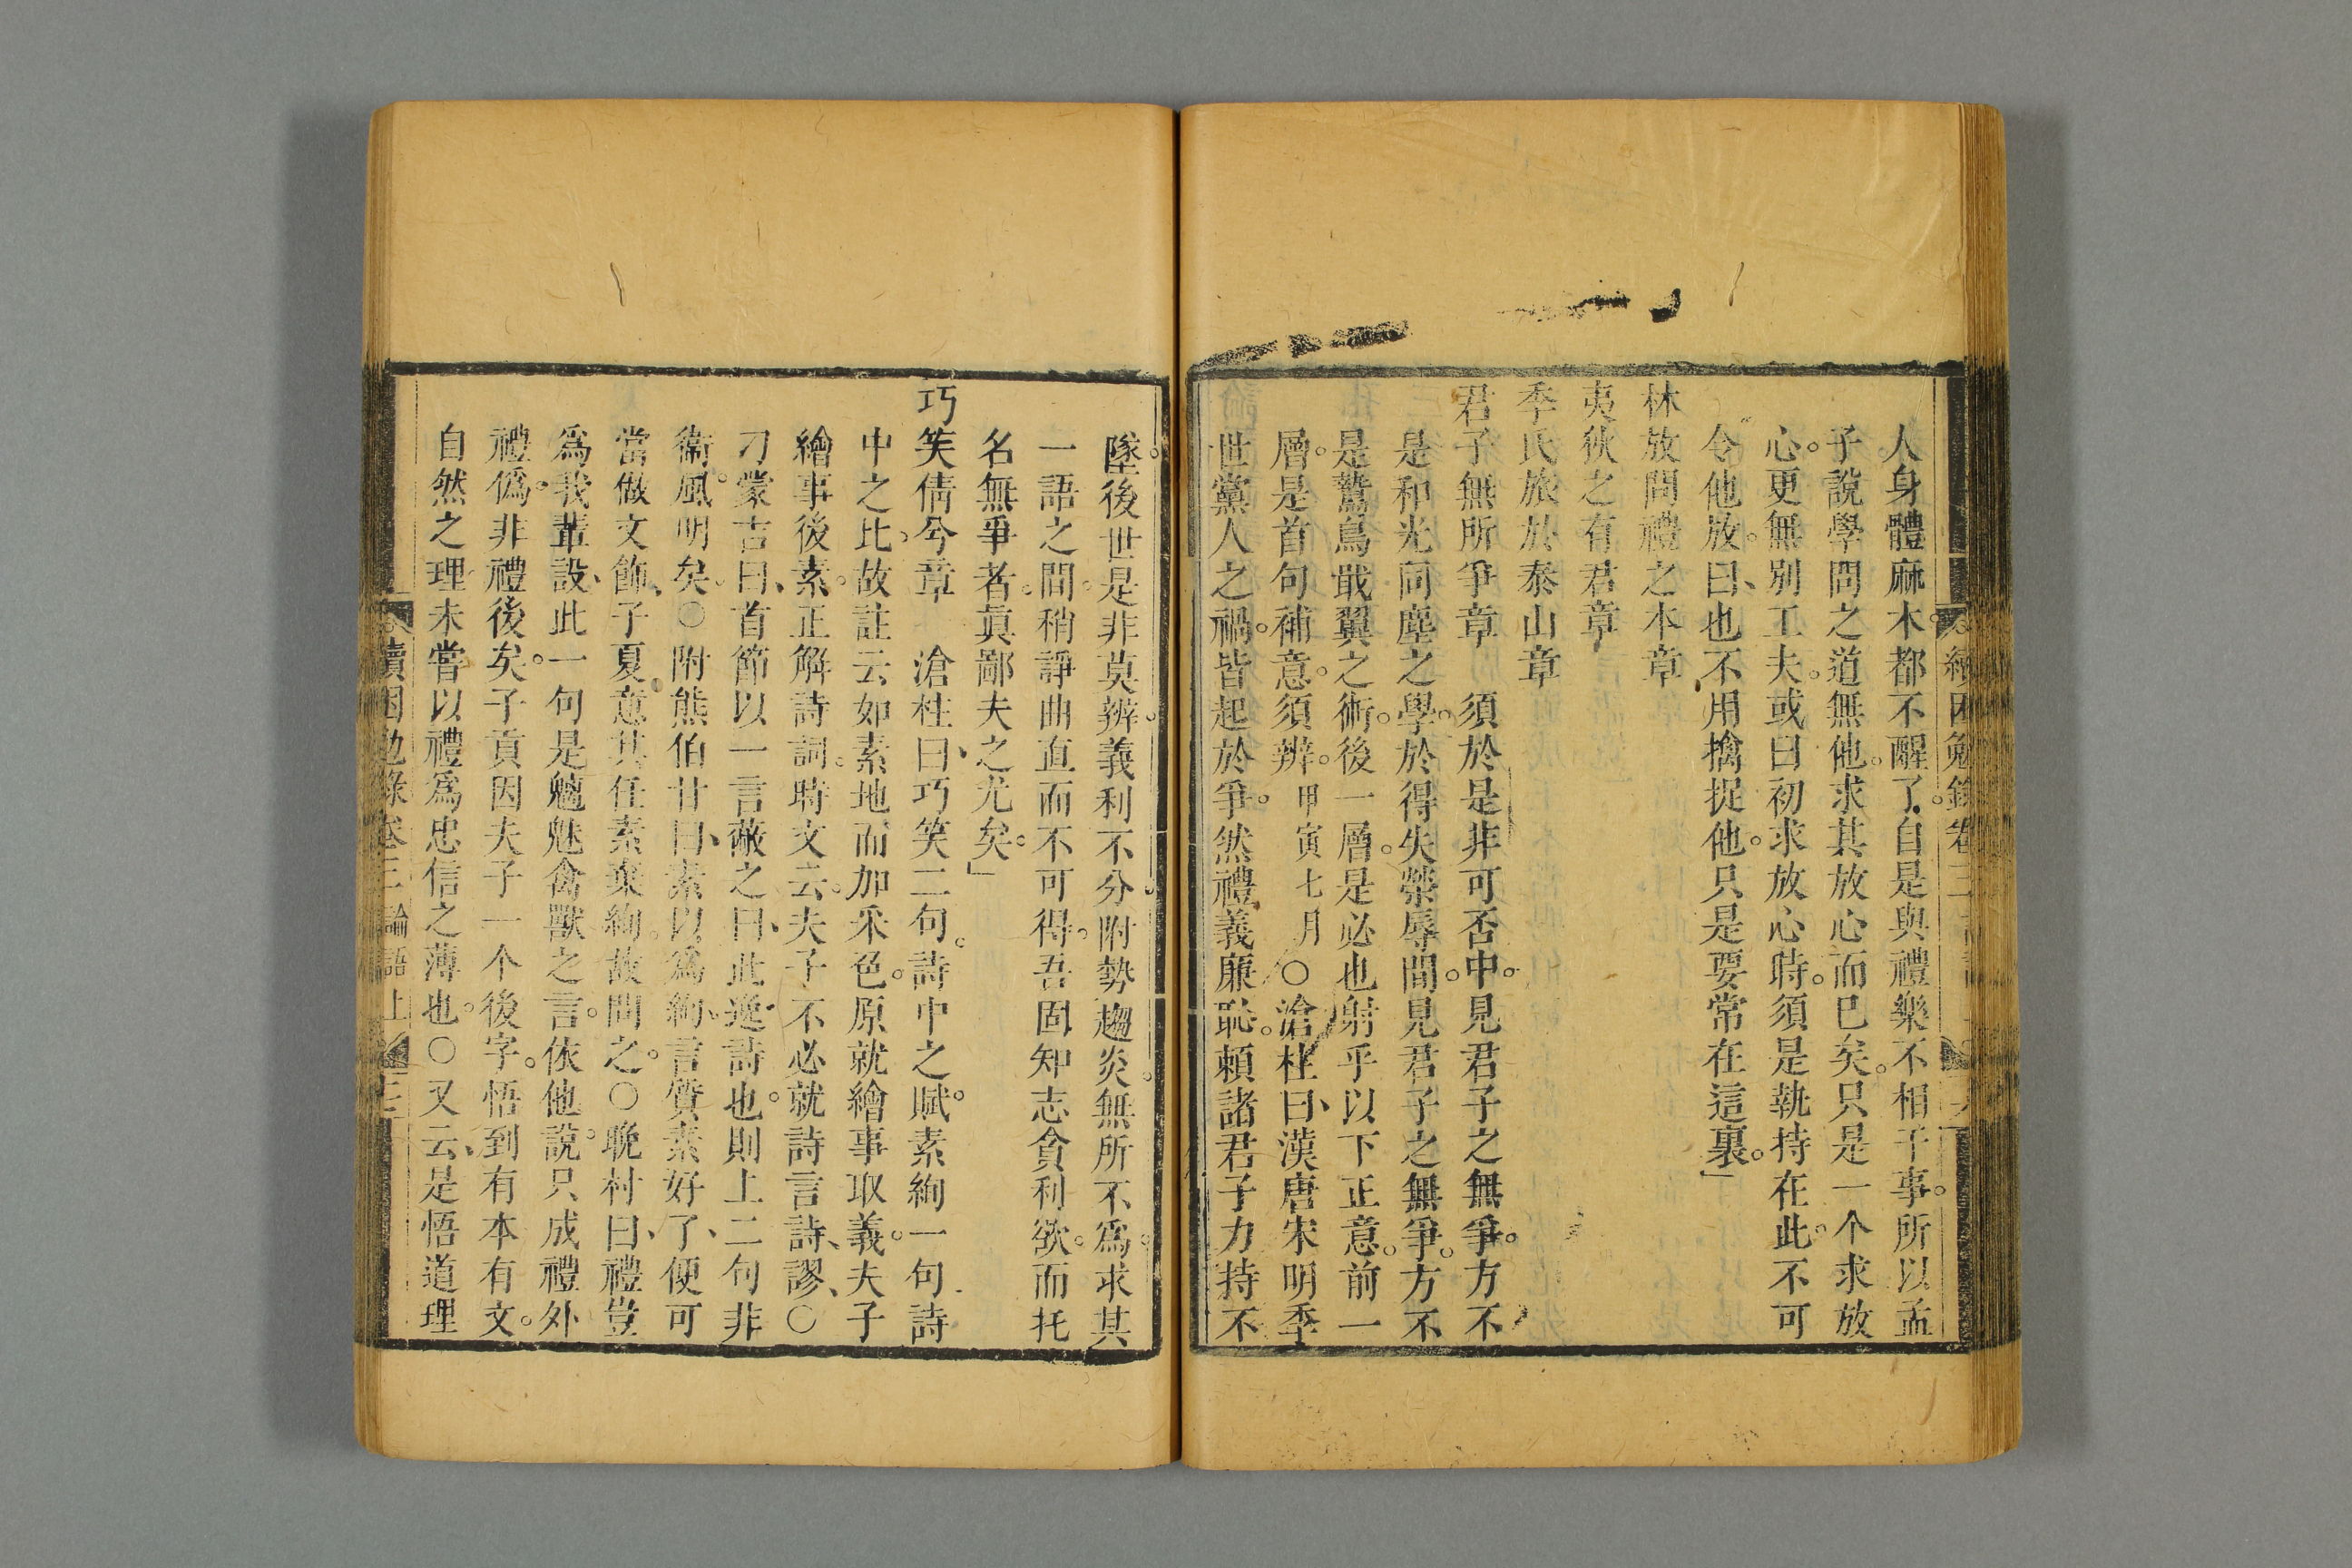 人身體麻木都不醒了自是與禮樂不相干事。所以孟
子說學問之道無他。求其放心而已矣。只是一个求放
心。更無別工夫。或曰初求放心時。須是執持在此。不可
令他放。曰、也不用擒捉他。只是要常在這裏。」
林放問禮之本章
夷狄之有君章
季氏旅於泰山章
君子無所爭章　須於是非可否中。見君子之無爭。方不
是和光同塵之學。於得失榮辱間。見君子之無爭。方不
是鷙鳥戢翼之術。後一層。是必也射乎以下正意。前一
層。是首句補意。須辨。甲寅七月○滄柱曰、漢唐宋明季
世黨人之禍。皆起於爭。然禮義廉恥。賴諸君子力持不
墜。後世是非莫辨。義利不分。附勢趨炎。無所不爲。求其
一語之間。稍諍曲直而不可得。吾固知志貪利欲。而托
名無爭者。眞鄙夫之尤矣。」
巧笑倩兮章　滄柱曰、巧笑二句。詩中之賦。素絢一句。詩
中之比。故註云如素地而加采色。原就繪事取義。夫子
繪事後素。正解詩詞。時文云。夫子不必就詩言詩、謬、○
刁蒙吉曰、首節以一言蔽之曰、此逸詩也。則上二句非
衞風明矣。○附熊伯甘曰、素以爲絢。言質素好了、便可
當做文飾、子夏意其任素棄絢。故問之。○晚村曰、禮豈
爲我輩設、此一句是魑魅禽獸之言。依他說。只成禮外
禮僞。非禮後矣。子貢因夫子一个後字。悟到有本有文。
自然之理。未嘗以禮爲忠信之薄也。○又云、是悟道理
續困勉錄卷三論語上